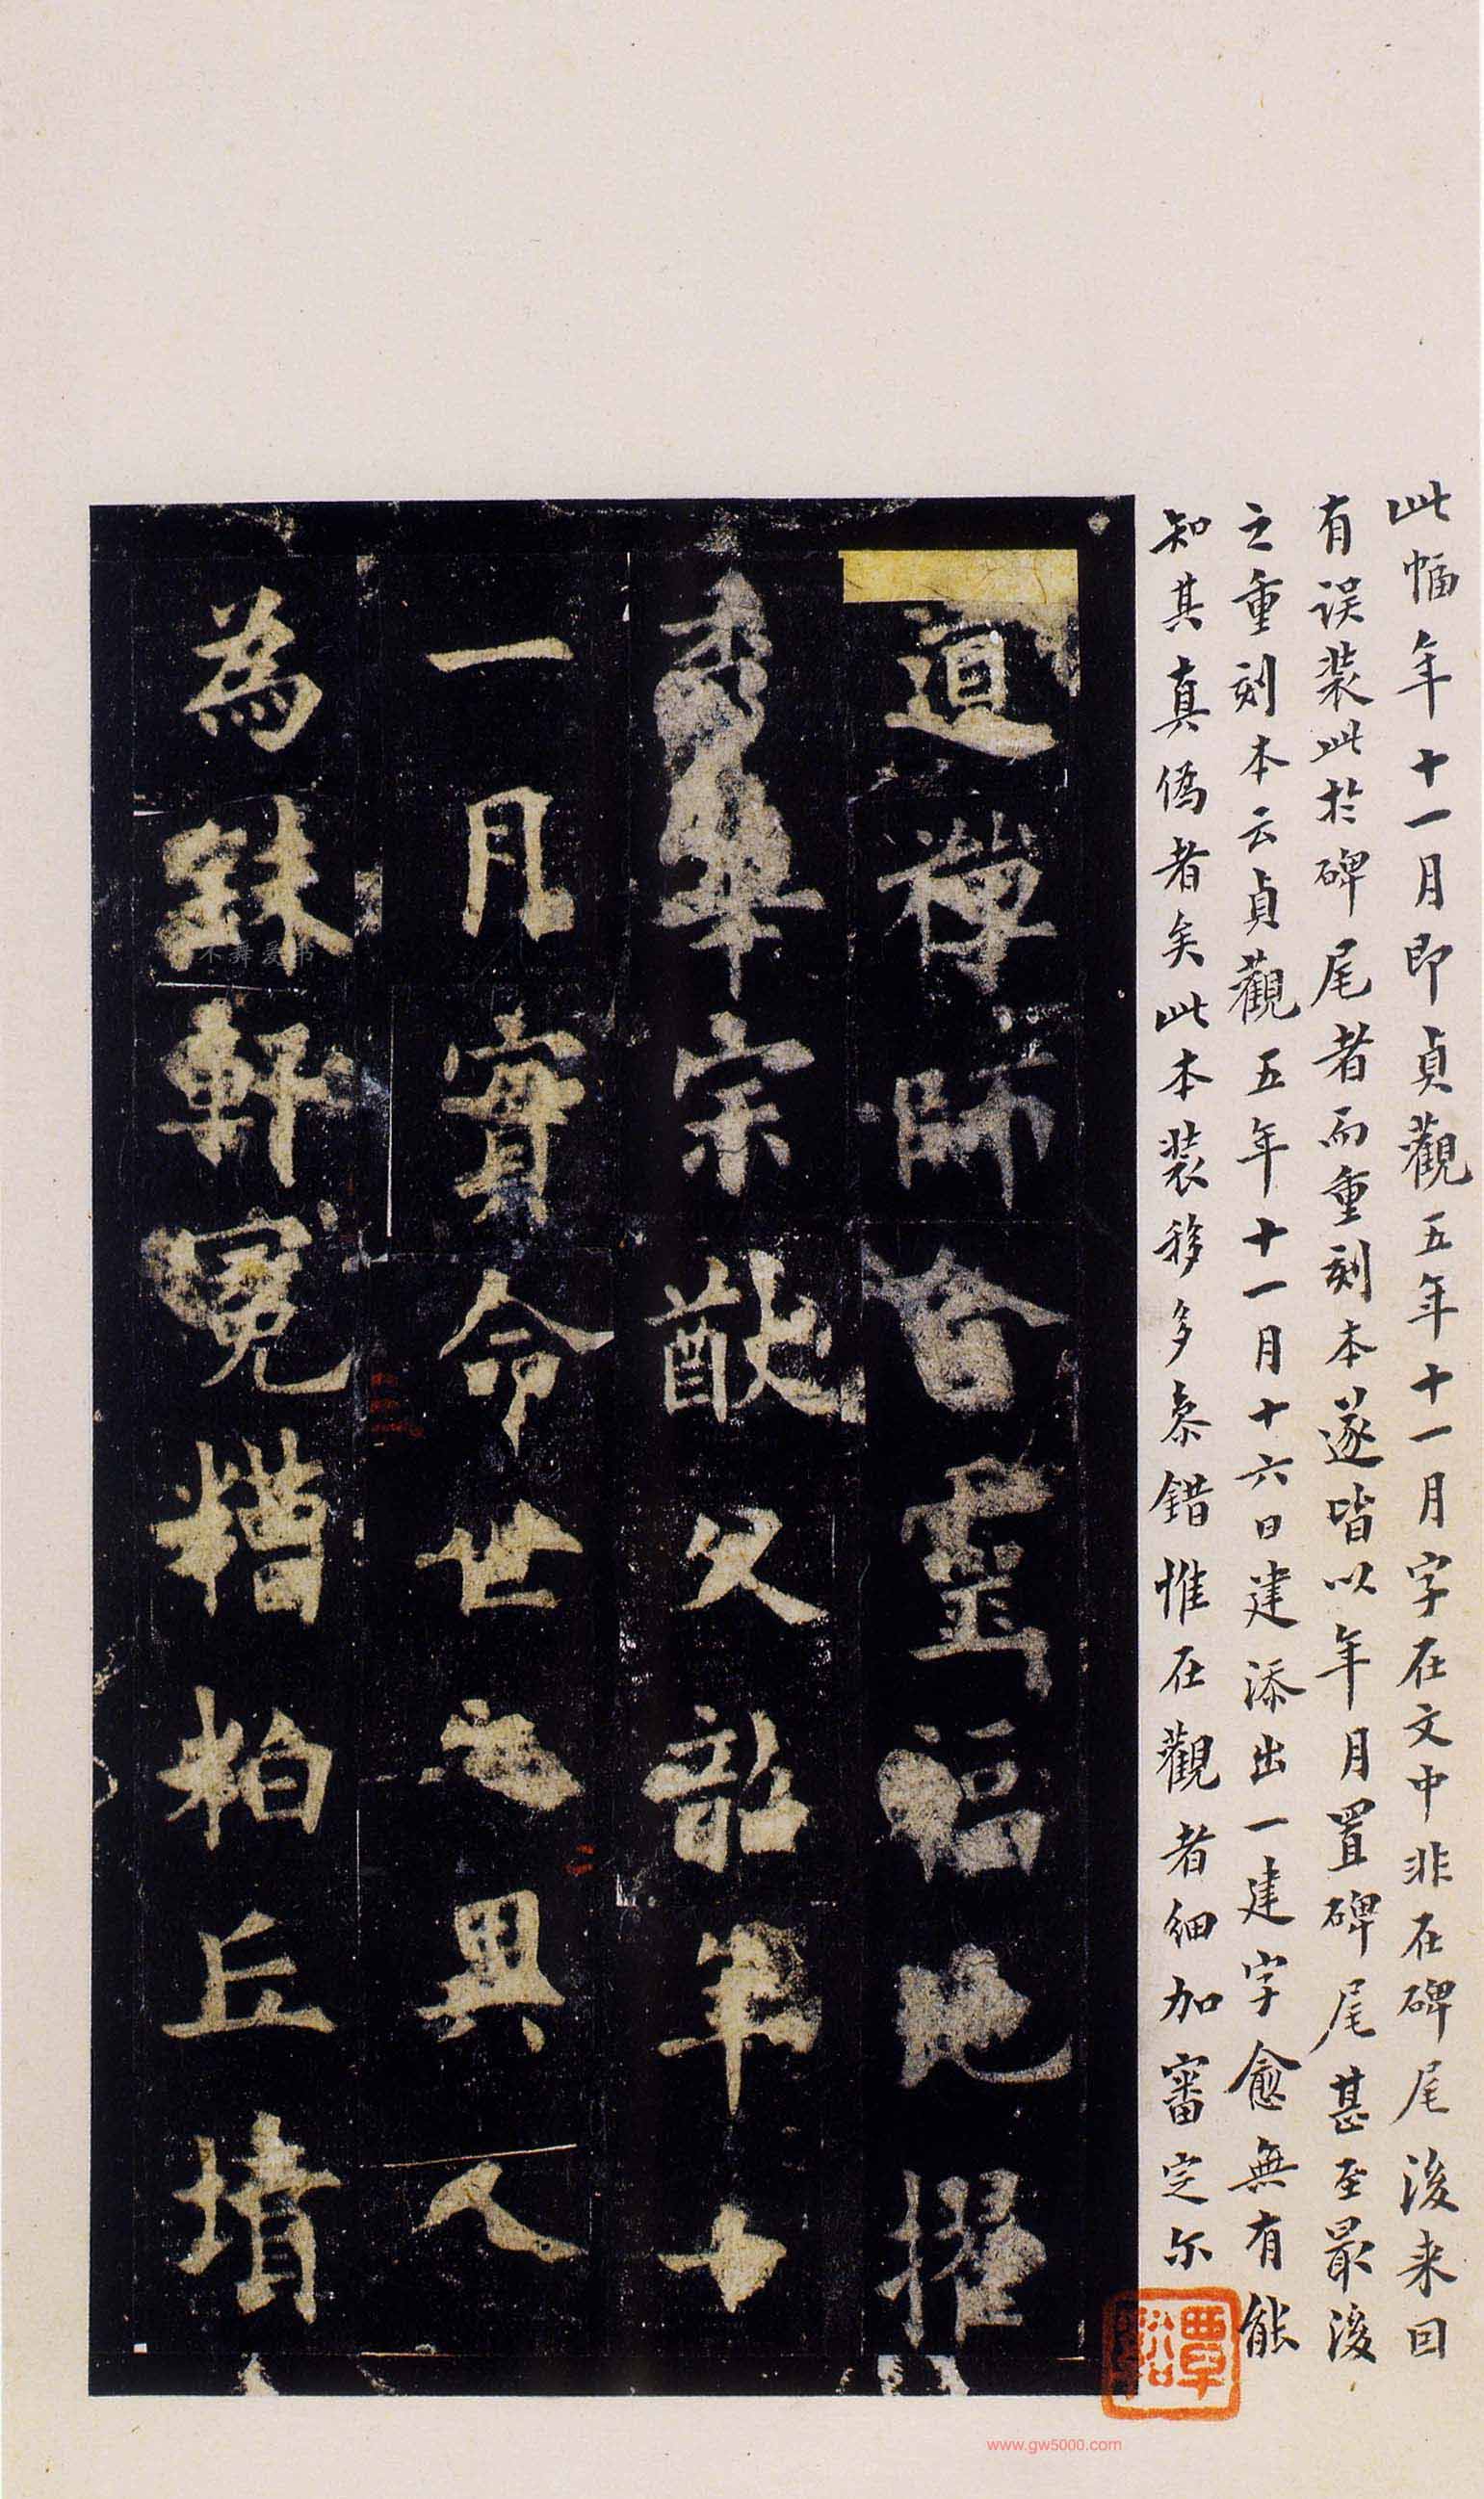 此幅年十一月即貞觀五年十一月字在文中非在碑尾後来囙
有误装此於碑尾者而重刻本遂皆以年月置碑尾甚至最後
之重刻本云貞觀五年十一月十六日建添出一建字愈無有能
知其真偽者矣此本装移多紊錯惟在觀者細加審定尔
覃谿
道禪師含靈福地擢
秀華宗猷父韶年十
一月實命世之異人
為銖軒冕糟粕丘墳
www.gw5000.com